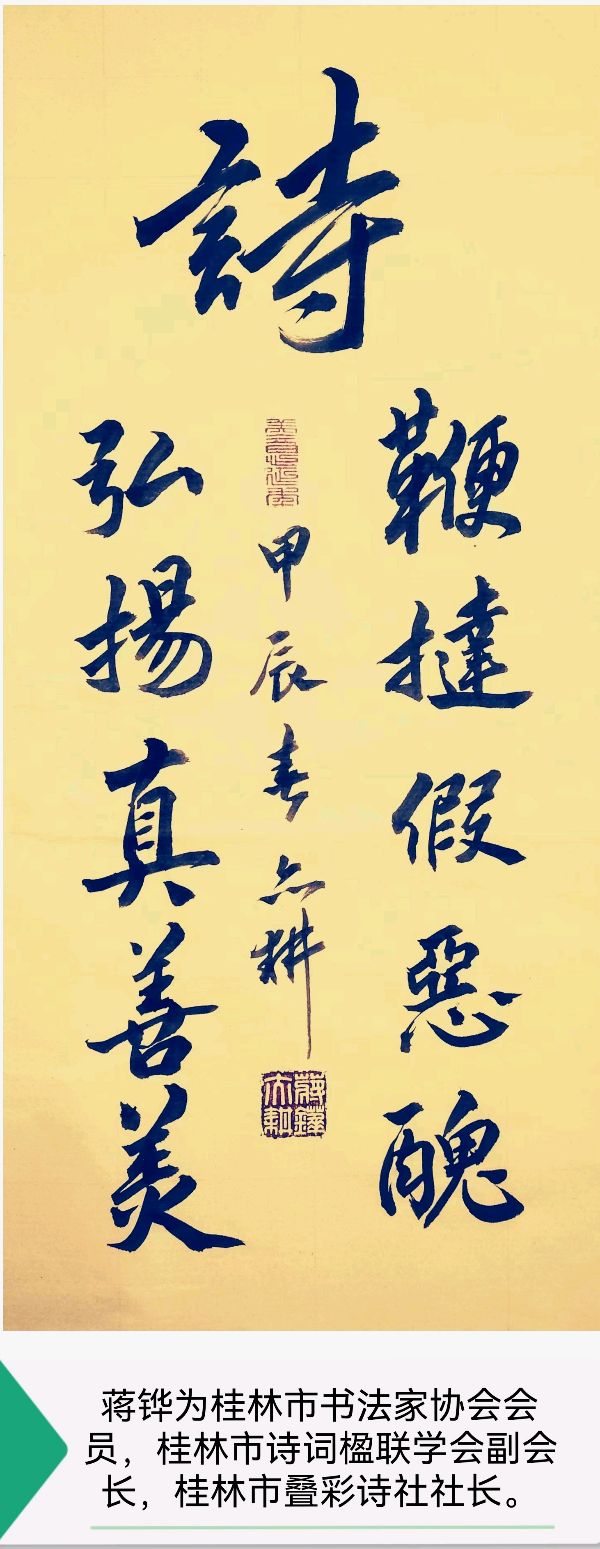 詩
鞭撻假惡醜
弘揚真善美
甲辰春亦耕
蒋铧为桂林市书法家协会会
员，桂林市诗词楹联学会副会
长，桂林市叠彩诗社社长。